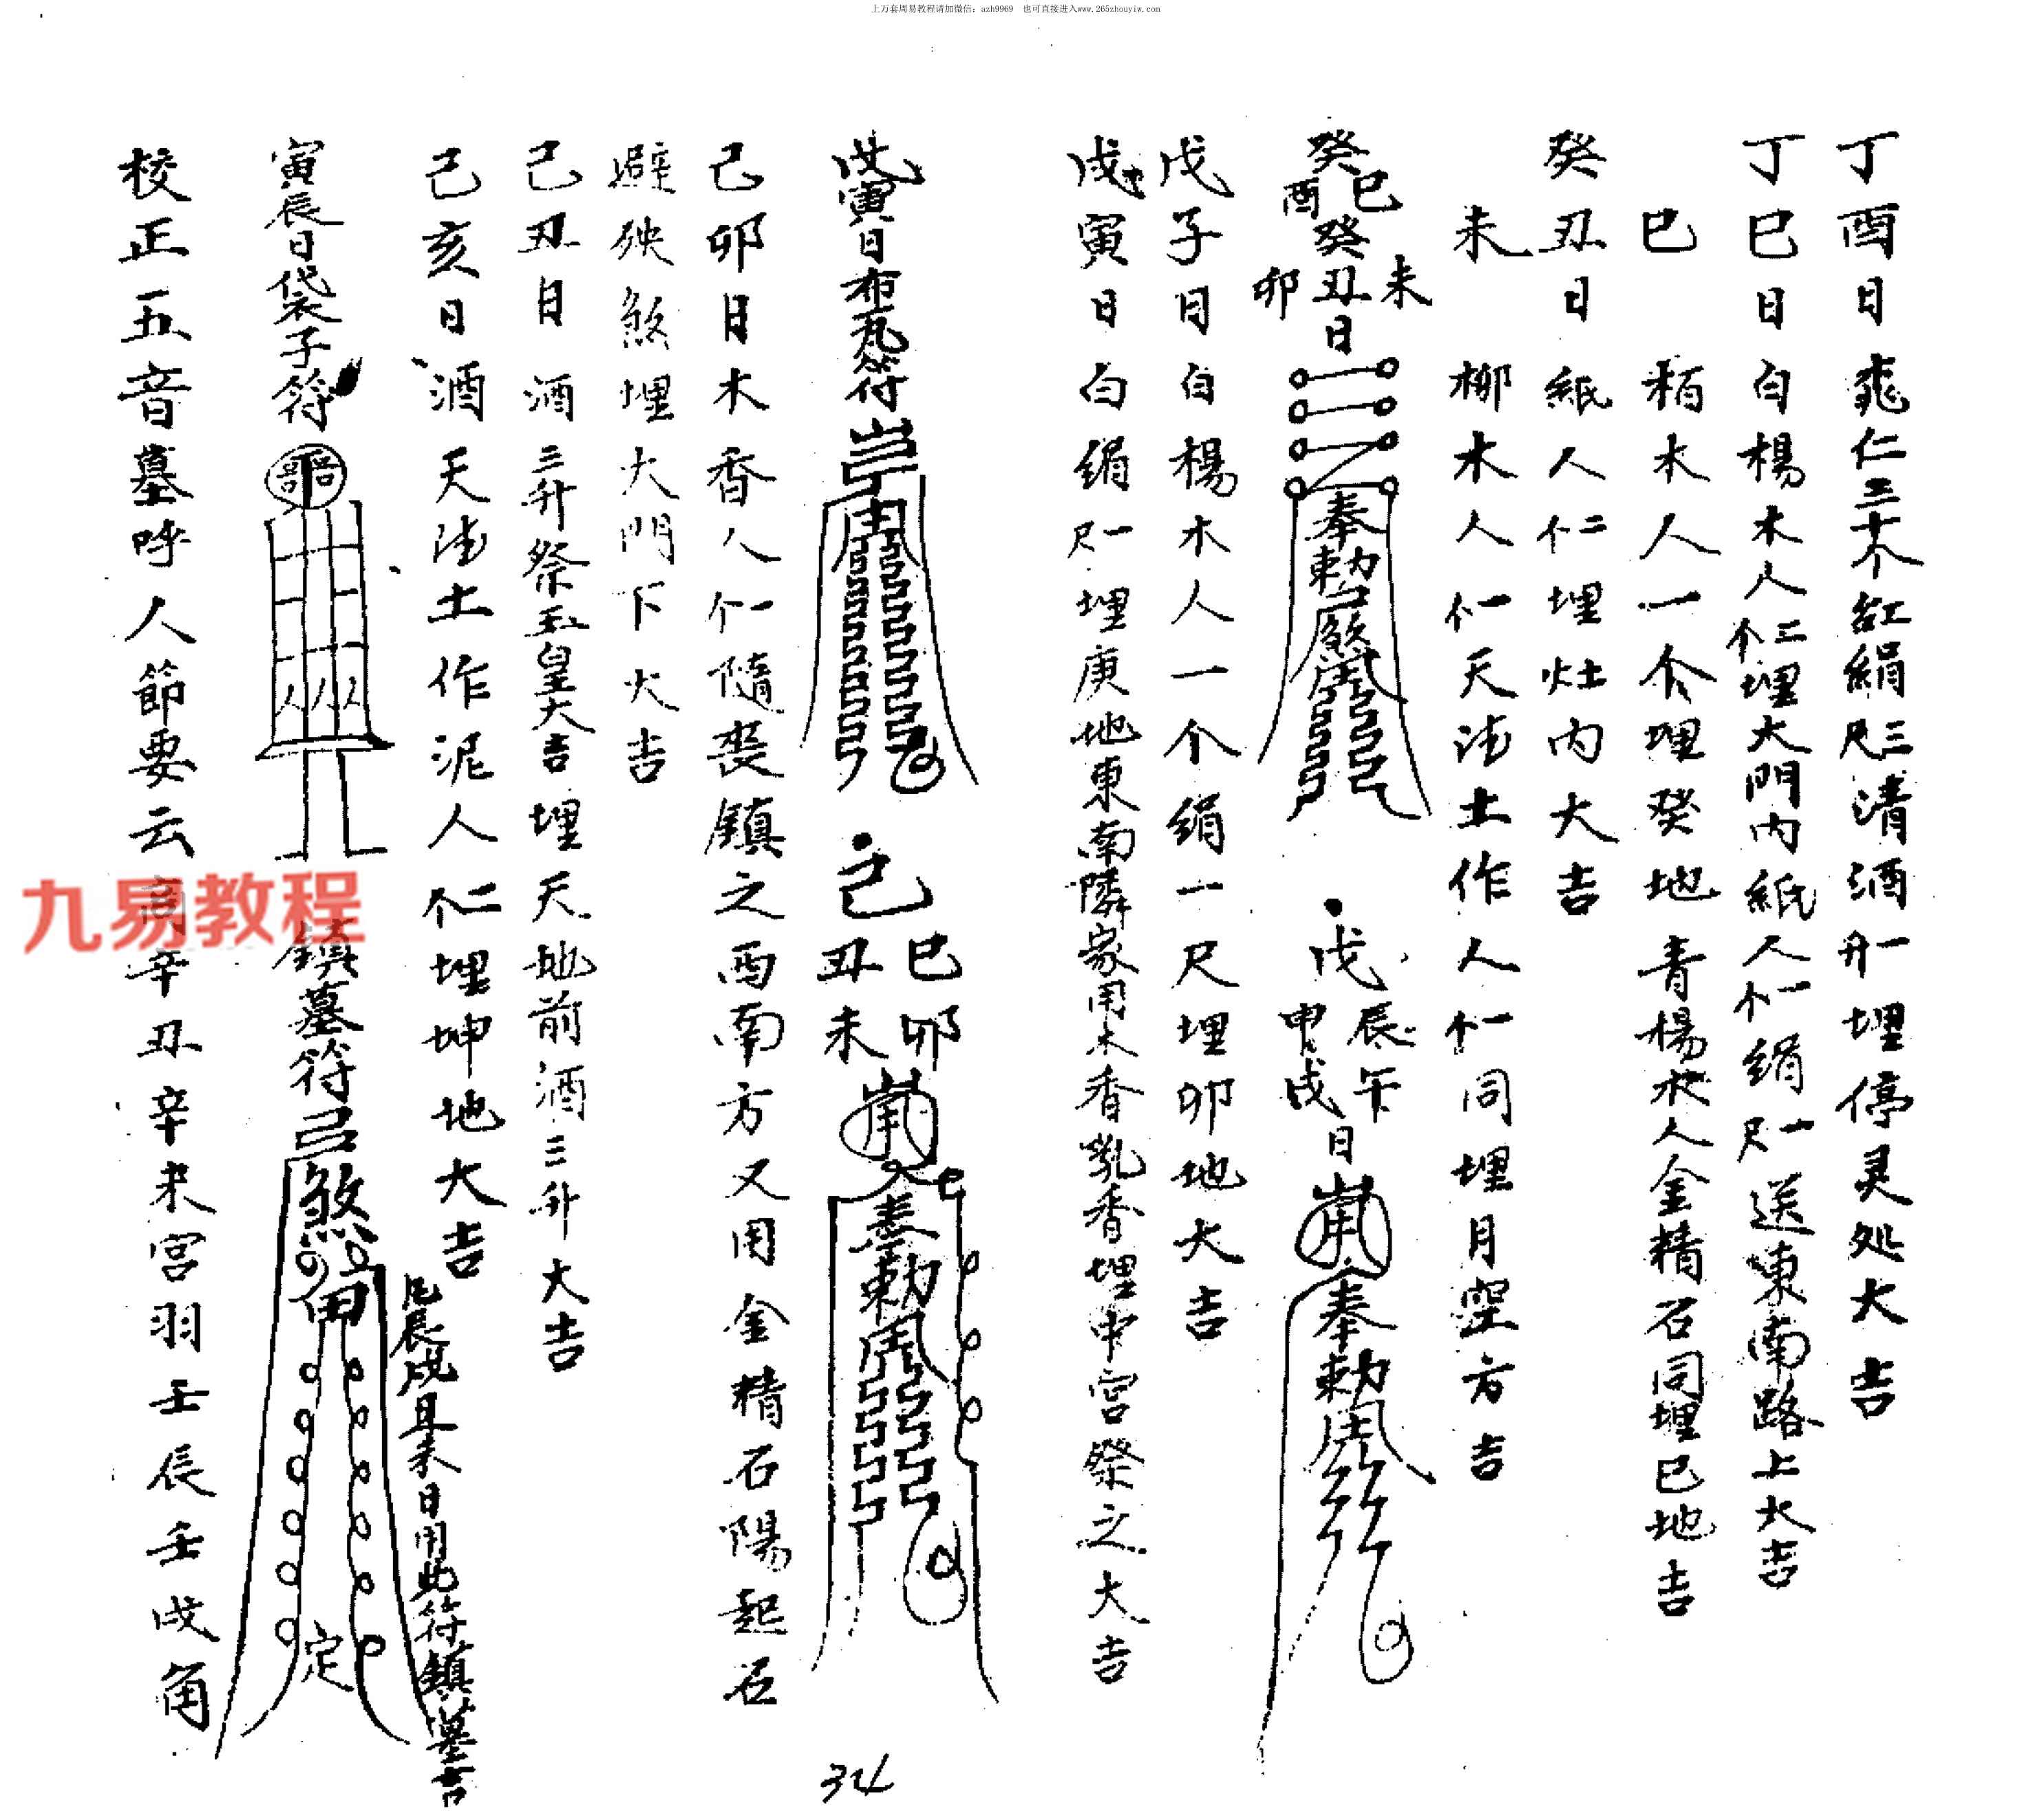 上万套周易教程请加微信：azh9969　也可直接进入www.265zhouyiw.com
丁酉日 桃仁三十个 紅絹三尺 清酒一升 埋停灵処大吉
丁巳日 白楊木人仁二个 埋大門内 紙人仁一个 絹一尺 送東南路上大吉
巳 栢木人一个 埋癸地 青楊木人金精石同埋巳地吉
癸丑日 紙人仁二 埋灶内大吉
未 柳木人仁一个 天法土作人仁一个 同埋月空方吉
癸巳酉癸丑未卯日
奉勅煞
戊辰午申戌日
奉勅
戊子日 白楊木人一个 絹一尺 埋卯地大吉
戊寅日 白絹一尺 埋庚地東南隣家用木香乳香埋中宮祭之大吉
戊寅日布瓦符
己巳卯丑未
奉勅
己卯日 木香人仁一个 隨丧鎮之西南方又用金精石陽起石
避殃煞埋大門下大吉
己丑日 酒三升祭玉皇大吉 埋天地前酒三升大吉
己亥日 酒天法土作泥人仁二个 埋坤地大吉
寅辰日袋子符
鎮墓符
煞
定
凡辰戌丑未日用此符鎮墓吉
校正五音墓呼人節要云 辛丑辛未宫羽壬辰壬戌角
九易教程
34